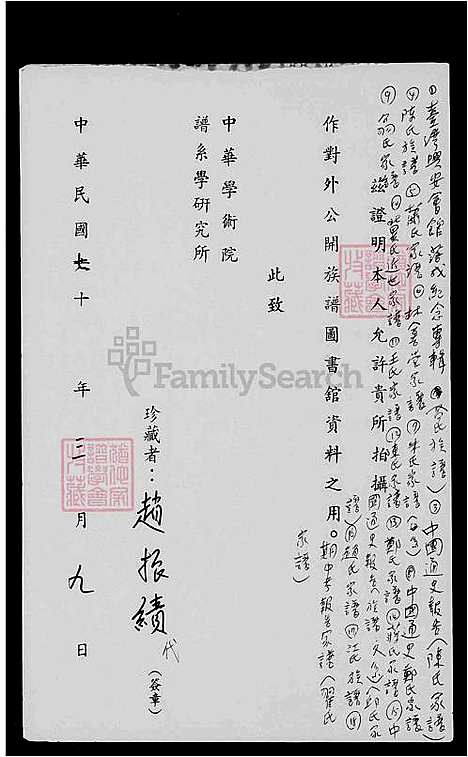 ①臺灣興安會館落成紀念專輯②氏族譜③中國通史報告(陳氏家譜)
④陳氏族譜⑤蕭氏家譜⑥林家譜⑦朱氏家譜⑧中國通史鄭氏家譜
⑨翁氏家譜⑩葉氏近世家譜⑪王氏家譜⑫陳氏家譜⑬鄭氏家譜⑭蔣氏家譜⑮中
國通史報告(族譜)邱氏家
譜)⑯趙氏家譜⑰江氏族譜⑱
期中考報告家譜(翟氏
家譜)
茲證明本人允許貴所拍攝
作對外公開族譜圖書館資料之用。
此致
中華學術院
譜系學研究所
珍藏者:趙振績代(簽章)
中華民國七十年三月九日
FamilySearch